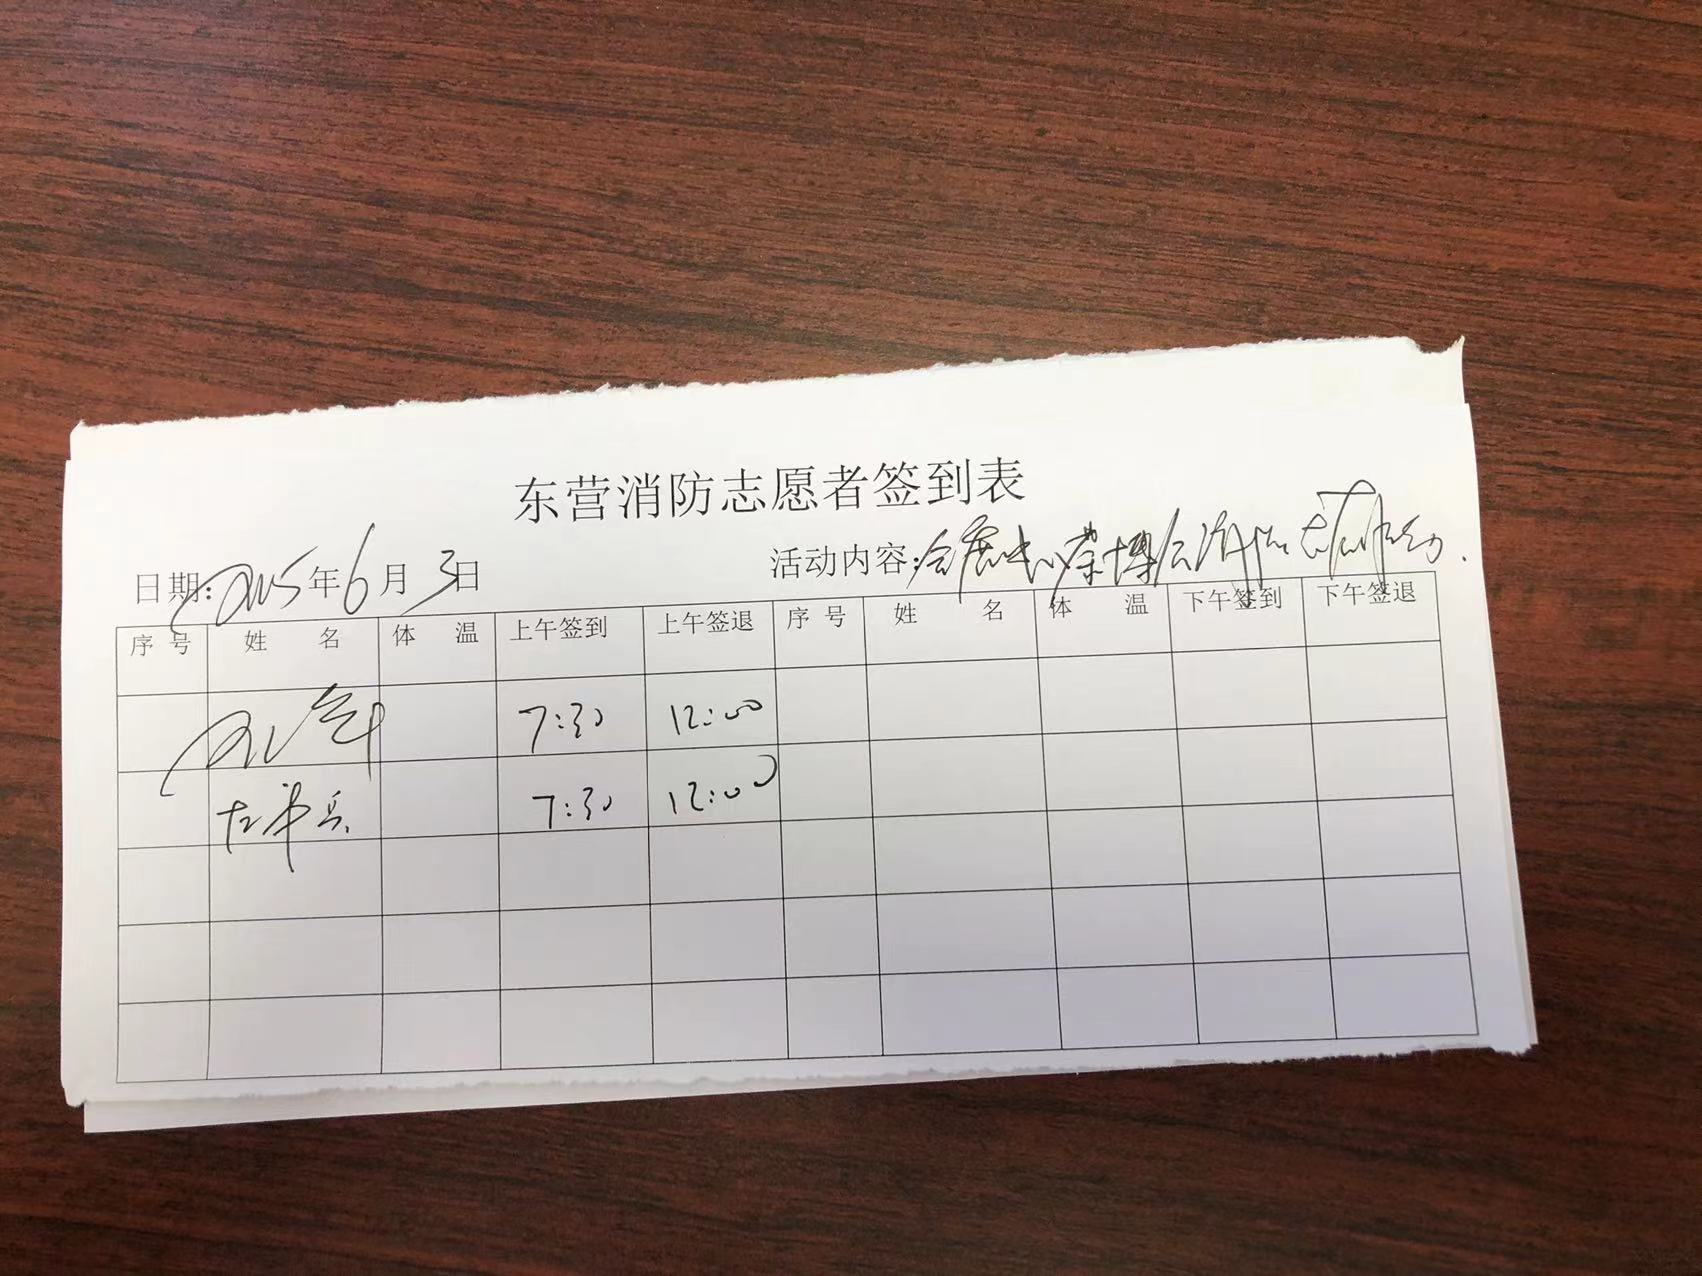 东营消防志愿者签到表
日期: 2025年6月3日 活动内容: 会展中心茶博会消防志愿活动.
序号 姓 名 体 温 上午签到 上午签退 序号 姓 名 体 温 下午签到 下午签退
7:30 12:00
7:30 12:00